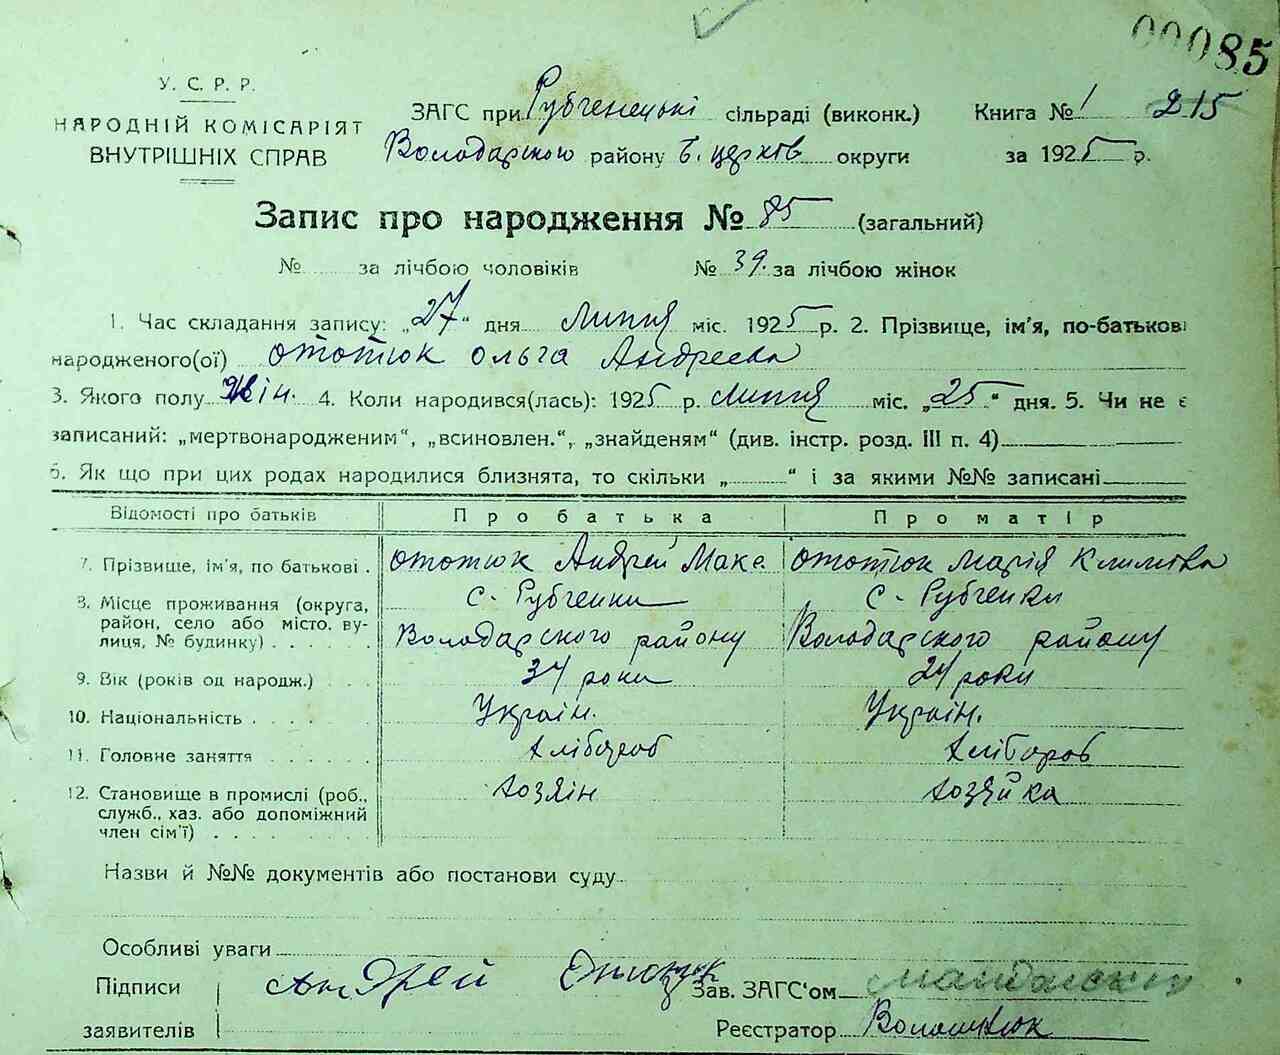 00085
У. С. Р. Р.
НАРОДНІЙ КОМІСАРІЯТ
ВНУТРІШНІХ СПРАВ
ЗАГС при Рубченецькі сільраді (виконк.) Книга № 1 215
Володарского району Б. церков округи за 1925 р.
Запис про народження № 85 (загальний)
№ за лічбою чоловіків № 39. за лічбою жінок
1. Час складання запису: „27“ дня Липня міс. 1925 р. 2. Прізвище, ім'я, по-батькові
народженого(ої) Ототюк Ольга Андреева
3. Якого полу Жін. 4. Коли народився(лась): 1925 р. Липня міс. „25“ дня. 5. Чи не є
записаний: „мертвонародженим“, „всиновлен.“, „знайденям“ (див. інстр. розд. III п. 4)
6. Як що при цих родах народилися близнята, то скільки „ “ і за якими №№ записані
Відомості про батьків Про батька Про матір
7. Прізвище, ім'я, по батькові . Ототюк Андрей Макс. Ототюк Марія Климова
8. Місце проживання (округа, с. Рубченки с. Рубченки
район, село або місто. ву-
лиця, № будинку) . . . . . . Володарского району Володарского району
9. Вік (років од народж.) . . 34 роки 24 роки
10. Національність . . . . Україн. Україн.
11. Головне заняття . . . . . Хлібороб Хлібороб
12. Становище в промислі (роб., хозяін хозяйка
служб., хаз. або допоміжний
член сім'ї) . . . .
Назви й №№ документів або постанови суду
Особливі уваги
Підписи Андрей Зав. ЗАГС'ом
заявителів Реєстратор Волощук